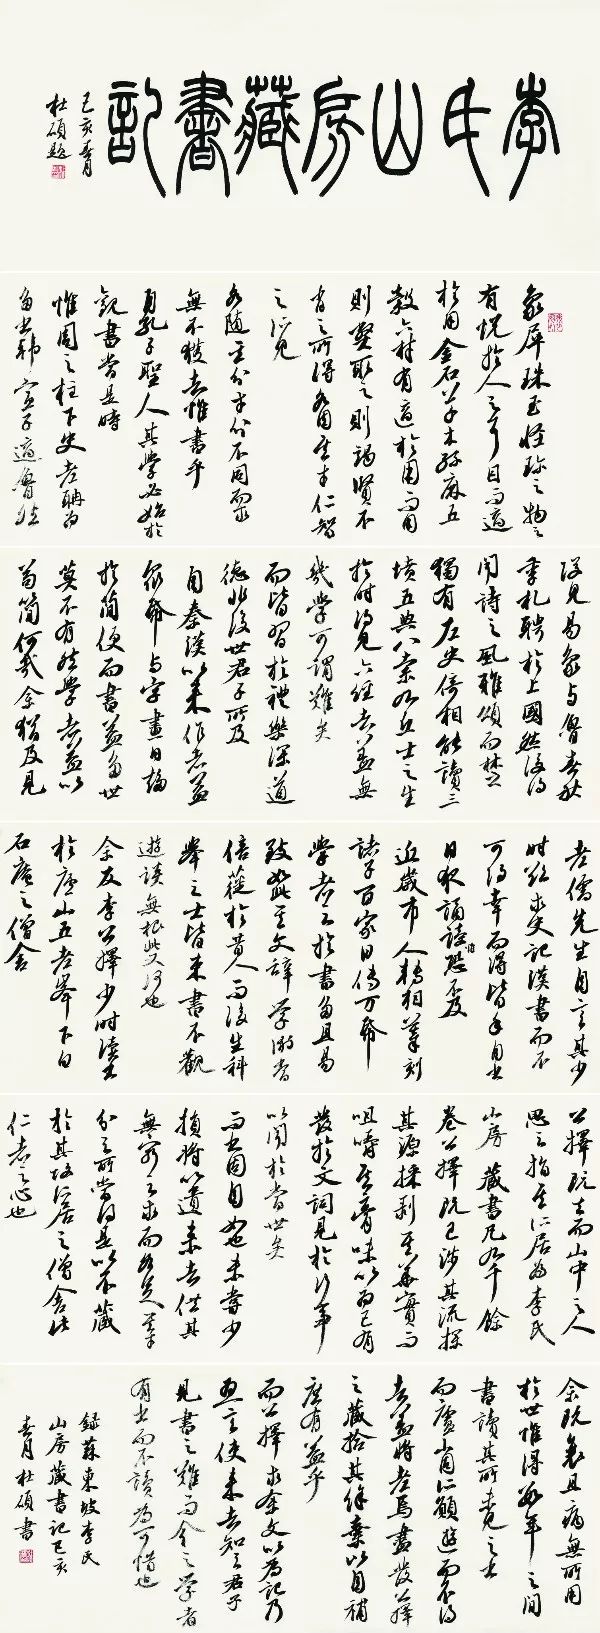 李氏山房藏書記
己亥春月
杜碩題
象犀珠玉怪珍之物
有悅於人之耳目而適
於用金石草木絲麻五
穀六材有適於用而用
則弊取之則竭賢不
肖之所得各因其才仁智
之所見
各隨其分才分不同而求
無不獲者惟書乎
自孔子聖人其學必始於
觀書當是時
惟周之柱下史老聃為
多書韓宣子適魯然
後見易象與魯春秋
季札聘於上國然後得
聞詩之風雅頌而楚
獨有左史倚相能讀三
墳五典八索九丘士之生
於時得見六經者蓋無
幾學可謂難矣
而皆習於禮樂深道
德非後世君子所及
自秦漢以來作者益
眾紙與字畫日趨
於簡便而書益多世
莫不有然學者益以
苟簡何哉余猶及見
老儒先生自言其少
時欲求史記漢書而不
可得幸而得皆手自書
日夜誦讀恐不及
近歲市人轉相摹刻
諸子百家日傳萬紙
學者之於書多且易
致如此其文辭學術當
倍蓰於昔人而後生科
舉之士皆束書不觀
遊談無根此又何也
余友李公擇少時讀書
於廬山五老峯下白
石庵之僧舍
公擇既去而山中之人
思之指其所居為李氏
山房藏書凡九千餘
卷公擇既已涉其流探
其源採剝其華實而
咀嚼其膏味以為己有
發於文詞見於行事
以聞於當世矣
而書固自如也未嘗少
損將以遺來者供其
無窮之求而各足其才
分之所當得是以不藏
於其故所居之僧舍此
仁者之心也
余既衰且病無所用
於世惟得數年之間
書讀其所未見之書
而廬山固所願遊而不得
者蓋將老焉盡發公擇
之藏拾其餘棄以自補
庶有益乎
而公擇求余文以為記乃
為言使來者知昔之君子
見書之難而今之學者
有書而不讀為可惜也
錄蘇東坡李氏
山房藏書記己亥
春月杜碩書